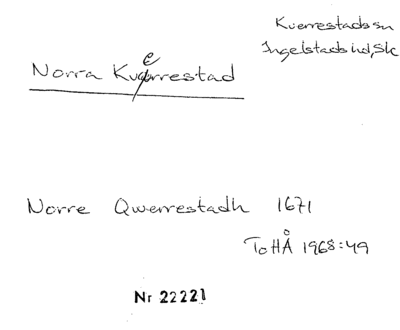 Kverrestads sn
Ingelstads hd, Sk
Norra Kverrestad
Norre Qwerrestadh 1671
ToHÅ 1968:49
Nr 22221